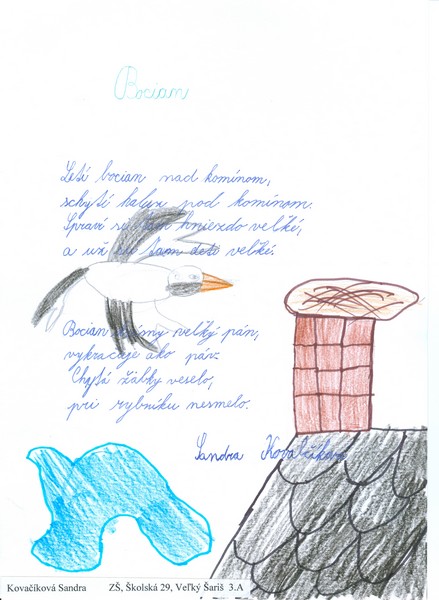 Bocian
Letí bocian nad komínom,
schytí haluz pod komínom.
Spraví si tam hniezdo veľké,
a už sú tam deti veľké.
Bocian pán,
vykračuje ako páv.
Chytá žabky veselo,
pri rybníku nesmelo.
Sandra Kovalčíková
Kovačíková Sandra ZŠ, Školská 29, Veľký Šariš 3.A